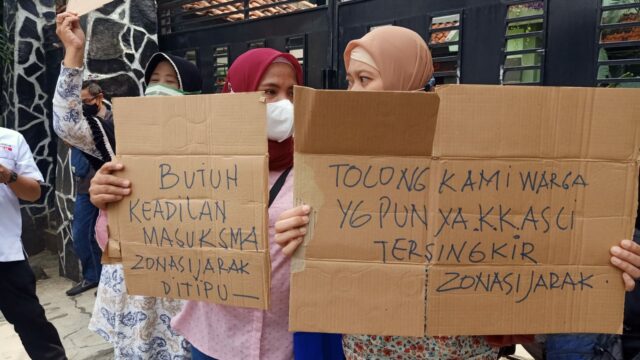 BUTUH
KEADILAN
MASUK SMA
ZONASI JARAK
DITIPU —
TOLONG KAMI WARGA
YG PUNYA.K.K ASLI
TERSINGKIR
ZONASI JARAK.